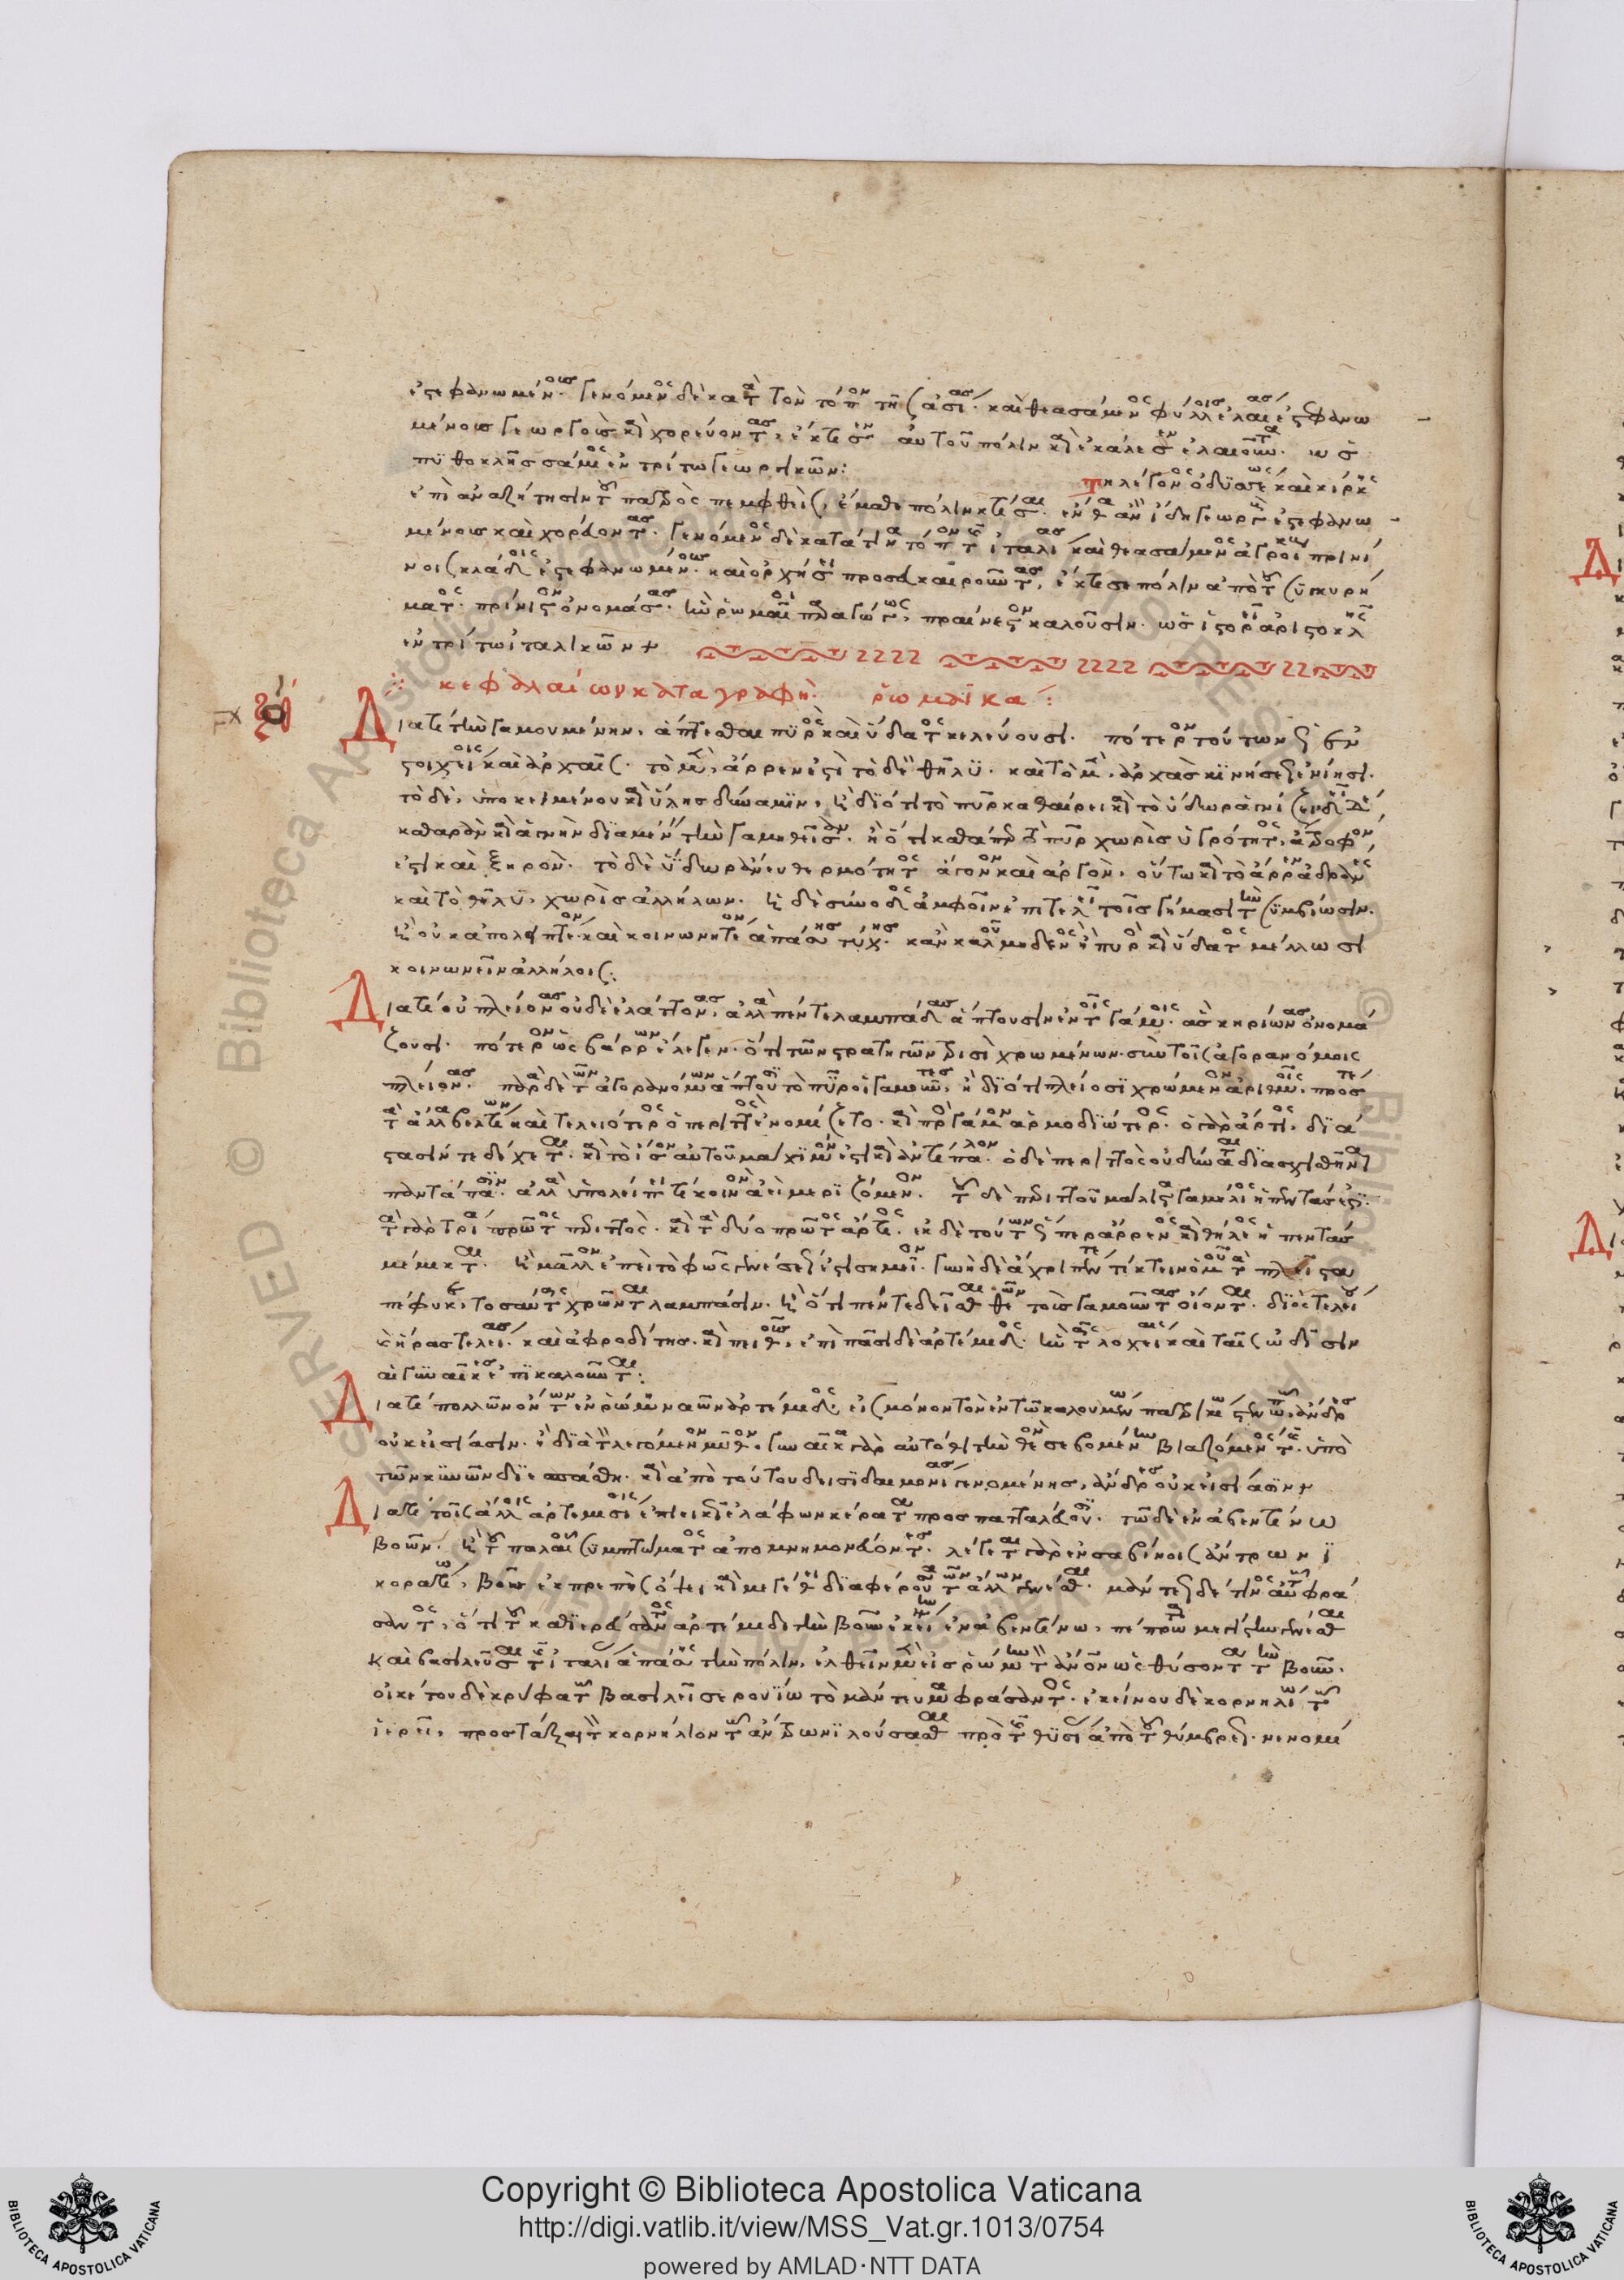 ἐστεφανωμένους. γενόμενος δὲ κατὰ τὸν τόπον τῆς ἀσίας. καὶ θεασάμενος φύλλοις ἐλαίας ἐστεφανω
μένους γεωργοὺς καὶ χορεύοντας, ἔκτισεν αὐτοῦ πόλιν καὶ ἐκάλεσεν ἐλαιοῦντα. ὡς
πυθοκλῆς σάμιος ἐν τρίτω γεωργικῶν:
τηλέγονος ὀδυσσέως καὶ κίρκης
ἐπὶ ἀναζήτησιν τοῦ πατρὸς πεμφθεὶς, ἔμαθε πόλιν κτίσαι. ἔνθα ἂν ἴδη γεωργοὺς ἐστεφανω
μένους καὶ χορεύοντας. γενόμενος δὲ κατά τινα τόπον τῆς ἰταλίας καὶ θεασάμενος ἀγροίκους πρινί
νοις κλάδοις ἐστεφανωμένους. καὶ ὀρχήσει προσευκαιροῦντας, ἔκτισε πόλιν ἀπὸ τοῦ συγκυρή
ματος. πρίνιστον ὀνομάσας. ἣν ῥωμαῖοι παραγώγως, πραίνεστον καλοῦσιν. ὡς ἱστορεῖ ἀριστοκλῆς
ἐν τρίτω ἰταλικῶν
κεφαλαίων καταγραφή. ῥωμαϊκα:
Διατί τὴν γαμουμένην, ἅπτεσθαι πυρὸς καὶ ὕδατος κελεύουσι. πότερον τούτων ὡς ἐν
στοιχείοις καὶ ἀρχαῖς. τὸ μὲν, ἄρρεν ἐστὶ τὸ δὲ θῆλυ. καὶ τὸ μὲν, ἀρχὰς κινήσεως ἐνίησι.
τὸ δὲ, ὑποκειμένου καὶ ὕλης δύναμιν, ἢ διότι τὸ πῦρ καθαίρει καὶ τὸ ὕδωρ ἁγνίζει δεῖ δὲ
καθαρὰν καὶ ἁγνὴν διαμένειν τὴν γαμηθεῖσαν. ἢ ὅτι καθάπερ τὸ πῦρ χωρὶς ὑγρότητος, ἄτροφον
ἐστι καὶ ξηρόν. τὸ δὲ ὕδωρ ἄνευ θερμότητος ἄγονον καὶ ἀργόν. οὕτω καὶ τὸ ἄρρεν ἀδρανὲς
καὶ τὸ θῆλυ, χωρὶς ἀλλήλων. ἡ δὲ σύνοδος ἀμφοῖν ἐπιτελεῖ τοῖς γήμασι τὴν συμβίωσιν.
ἢ οὐκ ἀπολειπτέον. καὶ κοινωνητέον ἁπάσης τύχης. κἂν καλοῦ μηδενὸς ἢ πυρὸς καὶ ὕδατος μέλλωσι
κοινωνεῖν ἀλλήλοις:
Διατί οὐ πλείονας οὐδὲ ἐλάττονας, ἀλλὰ πέντε λαμπάδας ἅπτουσιν ἐν τοῖς γάμοις. ἃς κηρίωνας ὀνομά
ζουσι. πότερον ὡς βάρρων ἔλεγεν. ὅτι τῶν στρατηγῶν τρισὶ χρωμένων. σὺν τοῖς ἀγορανόμοις
πλείονας. παρὰ δὲ τῶν ἀγορανόμων ἅπτουσι τὸ πῦρ οἱ γαμοῦντες, ἢ διότι πλείοσι χρωμένων ἀριθμοῖς. πρός τε
τὰ ἄλλα βελτίων καὶ τελειότερος ὁ περιττὸς ἐνομίζετο. καὶ πρὸς γάμον ἁρμοδιώτερος. ὁ γὰρ ἄρτιος, διά
στασίν τε δέχεται. καὶ τὸ ἴσον αὐτοῦ μάχιμόν ἐστι καὶ ἀντίπαλον. ὁ δὲ περιττὸς οὐ δύναται διασχισθῆναι
παντάπασιν. ἀλλὰ ὑπολείπει τι κοινὸν ἀεὶ μεριζόμενος. τοῦ δὲ περιττοῦ μάλιστα γαμήλιος ἡ πεντάς ἐστι.
τὰ γὰρ τρία πρῶτος περιττὸς. καὶ τὰ δύο πρῶτος ἄρτιος. ἐκ δὲ τούτων ὥσπερ ἄρρενος καὶ θήλεος ἡ πεντὰς
μέμικται. ἢ μᾶλλον ἐπεὶ τὸ φῶς γενέσεώς ἐστι σημεῖον. γυνὴ δὲ ἄχρι πέντε τίκτειν ὁμοῦ τὰ πλεῖστα
πέφυκε, τοσαύταις χρῶνται λαμπάσιν. ἢ ὅτι πέντε δεῖσθαι θεῶν τοὺς γαμοῦντας οἴονται. διὸς τελείου
καὶ ἥρας τελείας. καὶ ἀφροδίτης. καὶ πειθοῦς, ἐπὶ πᾶσι δὲ ἀρτέμιδος. ἣν ταῖς λοχείαις καὶ ταῖς ὠδῖσιν
αἱ γυναῖκες ἐπικαλοῦνται:
Διατί πολλῶν ὄντων ἐν ῥώμη ναῶν ἀρτέμιδος. εἰς μόνον τὸν ἐν τῶ καλουμένω πατρικίω στενωπῶ, ἄνδρες
οὐκ εἰσίασιν. ἢ διὰ τὸν λεγόμενον μῦθον. γυναῖκα γὰρ αὐτόθι τὴν θεὸν σεβομένην βιαζόμενός τις. ὑπὸ
τῶν κυνῶν διεσπάσθη. καὶ ἀπὸ τούτου δεισιδαιμονίας γενομένης, ἄνδρες οὐκ εἰσίασιν
Διατί τοῖς ἄλλοις ἀρτεμισίοις ἐπιεικῶς ἐλάφων κέρατα προσπατταλεύουσι. τῶ δὲ ἐν ἀβεντίνω
βοῶν. ἢ τοῦ παλαιοῦ συμπτώματος ἀπομνημονεύοντες. λέγεται γὰρ ἐν σαβίνοις ἄντρωνι
κορατίω, βοῦν ἐκπρεπὴς ὄψει καὶ μεγέθει διαφέρουσα τῶν ἄλλων γενέσθαι. μάντεως δέ τινος αὐτῶ φρά
σαντος, ὅτι τοῦ καθιερεύσαντος ἀρτέμιδι τὴν βοῦν ἐκείνην ἐν ἀβεντίνω, πέπρωται μεγίστην γενέσθαι
καὶ βασιλεῦσαι τῆς ἰταλίας ἁπάσης τὴν πόλιν, ἐλθεῖν μὲν εἰς ῥώμην τὸν ἄνθρωπον ὡς θύσοντα τὴν βοῦν.
οἰκέτου δὲ κρύφα τῶ βασιλεῖ σερουίω τὸ μάντευμα φράσαντος. ἐκείνου δὲ κορνηλίω τῶ
ἱερεῖ, προστάξαι τὸν κορνήλιον τῶ ἄντρωνι λούσασθαι πρὸ τῆς θυσίας ἀπὸ τοῦ θύμβρεως. νενομί
Copyright © Biblioteca Apostolica Vaticana
http://digi.vatlib.it/view/MSS_Vat.gr.1013/0754
powered by AMLAD·NTT DATA